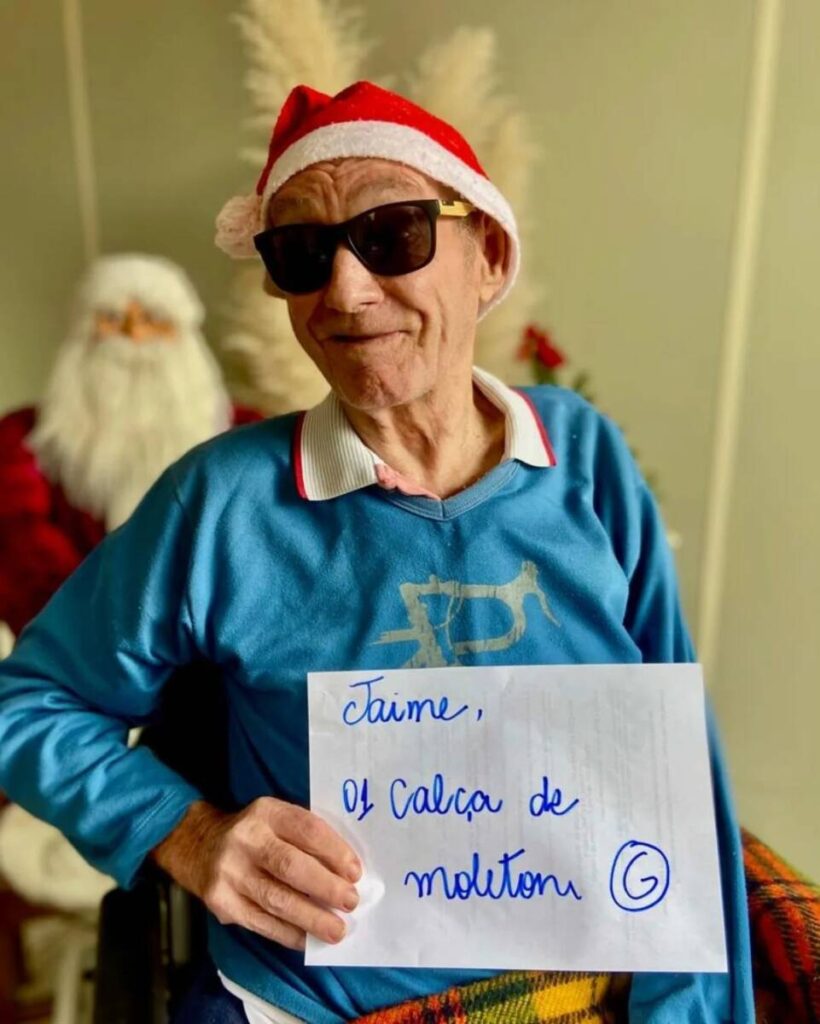 Jaime,
01 Calça de
moletom G